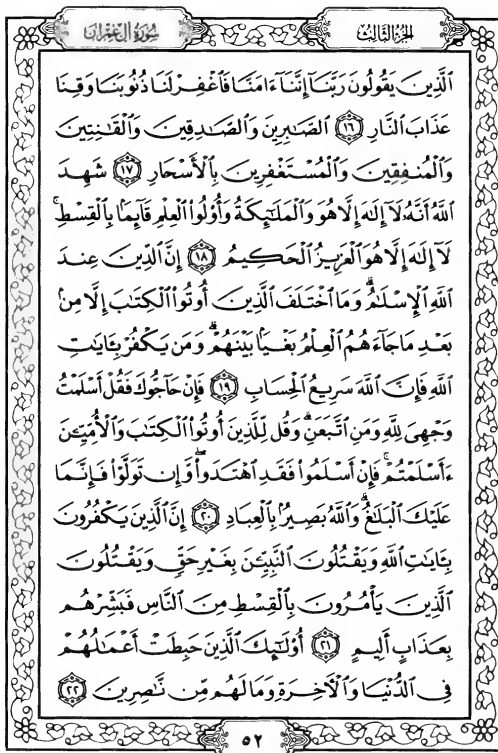 سُورَةُ آلِ عِمْرَان
الجُزْءُ الثَّالِث
ٱلَّذِينَ يَقُولُونَ رَبَّنَآ إِنَّنَآ ءَامَنَّا فَٱغْفِرْ لَنَا ذُنُوبَنَا وَقِنَا
عَذَابَ ٱلنَّارِ ١٦ ٱلصَّٰبِرِينَ وَٱلصَّٰدِقِينَ وَٱلْقَٰنِتِينَ
وَٱلْمُنفِقِينَ وَٱلْمُسْتَغْفِرِينَ بِٱلْأَسْحَارِ ١٧ شَهِدَ
ٱللَّهُ أَنَّهُۥ لَآ إِلَٰهَ إِلَّا هُوَ وَٱلْمَلَٰٓئِكَةُ وَأُو۟لُوا۟ ٱلْعِلْمِ قَآئِمًۢا بِٱلْقِسْطِۚ
لَآ إِلَٰهَ إِلَّا هُوَ ٱلْعَزِيزُ ٱلْحَكِيمُ ١٨ إِنَّ ٱلدِّينَ عِندَ
ٱللَّهِ ٱلْإِسْلَٰمُۗ وَمَا ٱخْتَلَفَ ٱلَّذِينَ أُوتُوا۟ ٱلْكِتَٰبَ إِلَّا مِنۢ
بَعْدِ مَا جَآءَهُمُ ٱلْعِلْمُ بَغْيًۢا بَيْنَهُمْۗ وَمَن يَكْفُرْ بِـَٔايَٰتِ
ٱللَّهِ فَإِنَّ ٱللَّهَ سَرِيعُ ٱلْحِسَابِ ١٩ فَإِنْ حَآجُّوكَ فَقُلْ أَسْلَمْتُ
وَجْهِىَ لِلَّهِ وَمَنِ ٱتَّبَعَنِۗ وَقُل لِّلَّذِينَ أُوتُوا۟ ٱلْكِتَٰبَ وَٱلْأُمِّيِّـۧنَ
ءَأَسْلَمْتُمْۚ فَإِنْ أَسْلَمُوا۟ فَقَدِ ٱهْتَدَوا۟ۖ وَّإِن تَوَلَّوْا۟ فَإِنَّمَا
عَلَيْكَ ٱلْبَلَٰغُۗ وَٱللَّهُ بَصِيرٌۢ بِٱلْعِبَادِ ٢٠ إِنَّ ٱلَّذِينَ يَكْفُرُونَ
بِـَٔايَٰتِ ٱللَّهِ وَيَقْتُلُونَ ٱلنَّبِيِّـۧنَ بِغَيْرِ حَقٍّ وَيَقْتُلُونَ
ٱلَّذِينَ يَأْمُرُونَ بِٱلْقِسْطِ مِنَ ٱلنَّاسِ فَبَشِّرْهُم
بِعَذَابٍ أَلِيمٍ ٢١ أُو۟لَٰٓئِكَ ٱلَّذِينَ حَبِطَتْ أَعْمَٰلُهُمْ
فِى ٱلدُّنْيَا وَٱلْءَاخِرَةِ وَمَا لَهُم مِّن نَّٰصِرِينَ ٢٢
٥٢